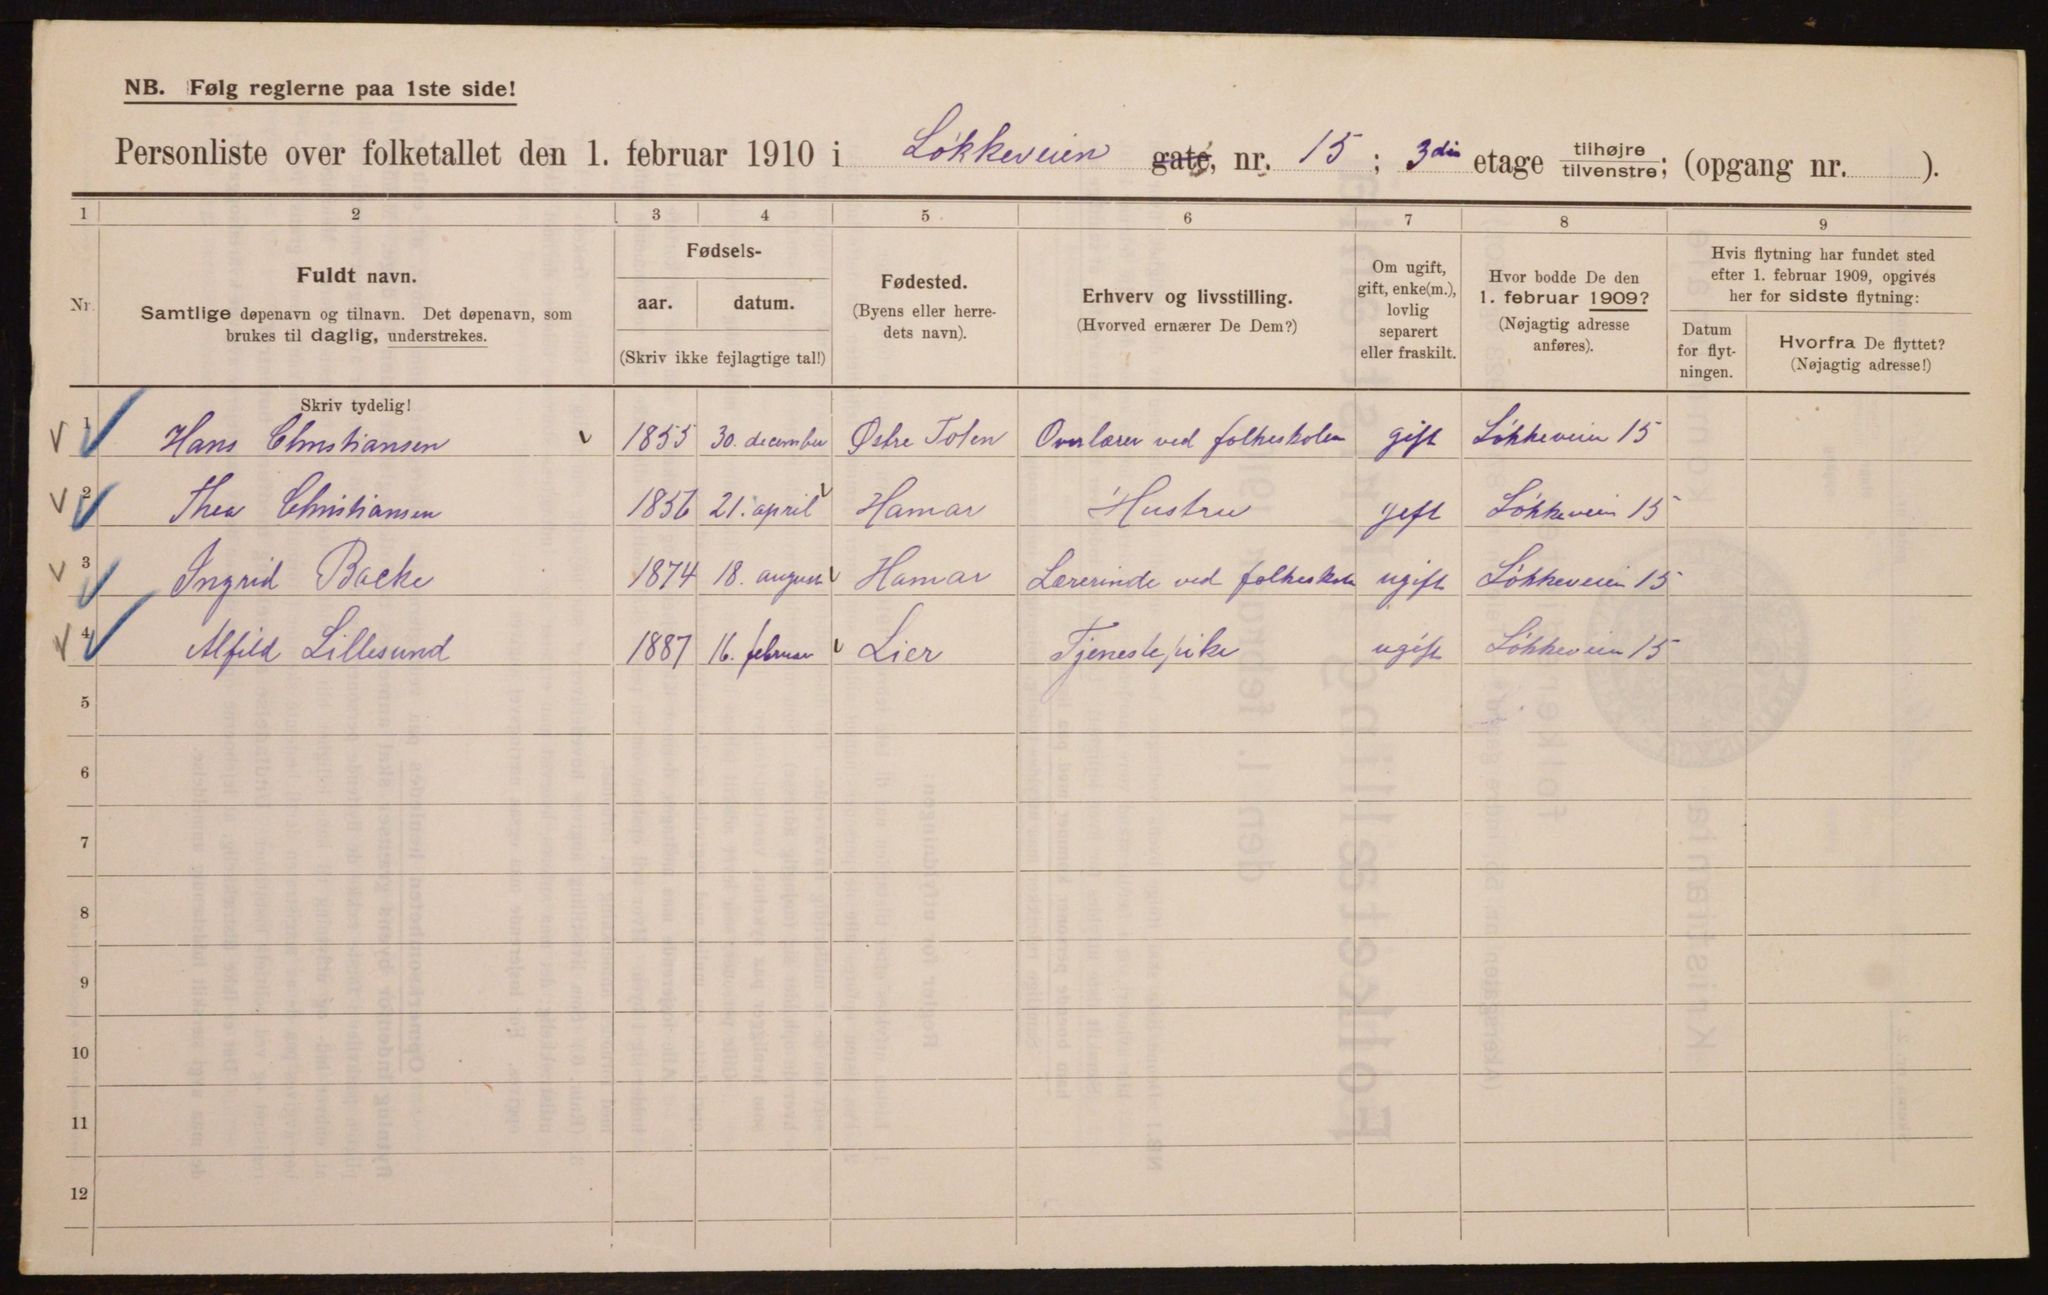 NB. Følg reglerne paa 1ste side!
Personliste over folketallet den 1. februar 1910 i Løkkeveien gate, nr. 15; 3die etage tilhøjre/tilvenstre; (opgang nr. ).
1 2 3 4 5 6 7 8 9
Nr.
Fuldt navn.
Samtlige døpenavn og tilnavn. Det døpenavn, som
brukes til daglig, understrekes.
Fødsels-
aar. datum.
(Skriv ikke fejlagtige tal!)
Fødested.
(Byens eller herre-
dets navn).
Erhverv og livsstilling.
(Hvorved ernærer De Dem?)
Om ugift,
gift, enke(m.),
lovlig
separert
eller fraskilt.
Hvor bodde De den
1. februar 1909?
(Nøjagtig adresse
anføres).
Hvis flytning har fundet sted
efter 1. februar 1909, opgives
her for sidste flytning:
Datum
for flyt-
ningen.
Hvorfra De flyttet?
(Nøjagtig adresse!)
Skriv tydelig!
1 Hans Christiansen 1855 30. december Østre Toten Overlærer ved folkeskolen gift Løkkeveien 15
2 Thea Christiansen 1856 21. april Hamar Hustru gift Løkkeveien 15
3 Ingrid Backe 1874 18. august Hamar Lærerinde ved folkeskolen ugift Løkkeveien 15
4 Alfild Lillesund 1887 16. februar Lier Tjenestepike ugift Løkkeveien 15
5
6
7
8
9
10
11
12